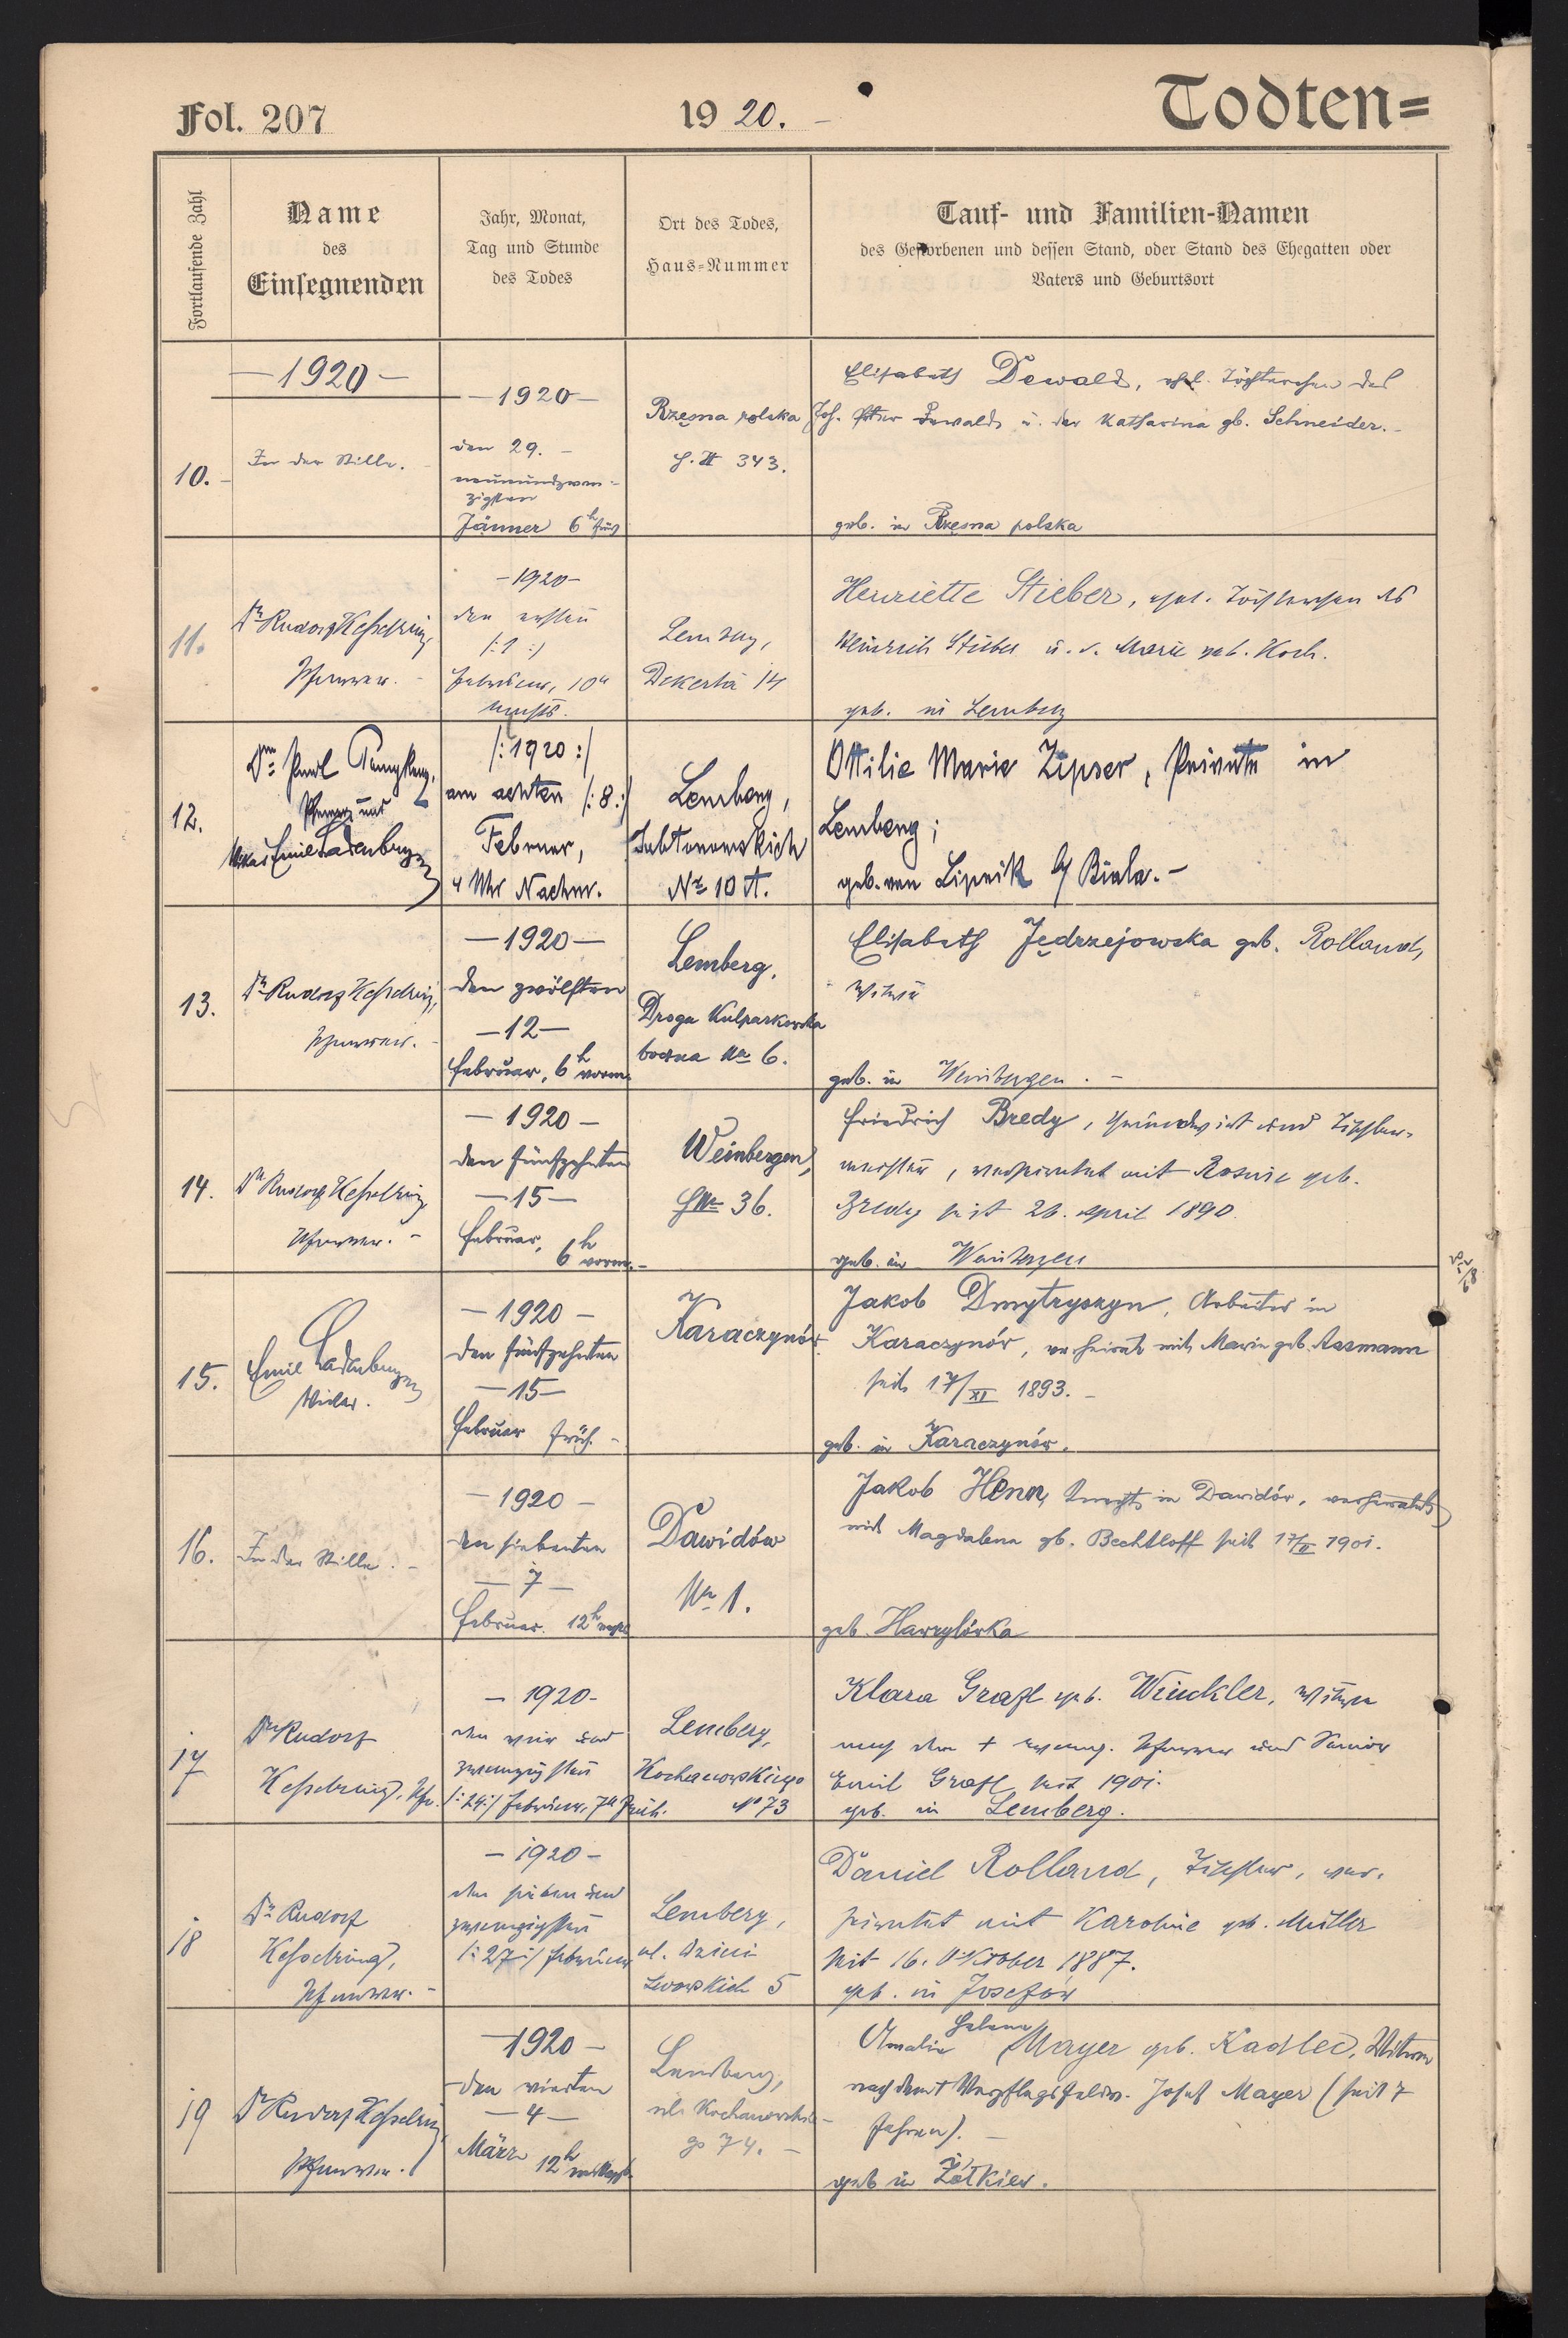 Fol. 207
1920. –
Todten=
Fortlaufende Zahl
Name
des
Einsegnenden
Jahr, Monat,
Tag und Stunde
des Todes
Ort des Todes,
Haus=Nummer
Tauf- und Familien-Namen
des Gestorbenen und dessen Stand, oder Stand des Ehegatten oder
Vaters und Geburtsort
– 1920 –
10. –
In der Stille. –
– 1920 –
den 29. –
neunundzwan-
zigsten
Jänner 6h früh
Rzęsna polska
343.
Elisabeth Dewald, ehel. Töchterchen des
Joh. Peter Dewald u. der Katharina gb. Schneider. –
geb. in Rzęsna polska
11.
Dr Rudolf Kesselring,
Pfarrer. –
– 1920 –
den ersten
/: 1 :/
Februar, 10h
nachts.
Lemberg,
Dekerta 14
Henriette Stieber, ehel. Töchterchen des
Heinrich Stieber u. d. Marie geb. Koch.
geb. in Lemberg
12.
Dr. Paul
Pfarrer und
Vikar Emil Ladenberger
/: 1920 :/
am achten /: 8 :/
Februar,
4 Uhr Nachm.
Lemberg,
Jabłonowskich
Nr 10 A.
Ottilie Marie Zipser, Private in
Lemberg;
geb. von Lipnik b/ Biala. –
13.
Dr Rudolf Kesselring,
Pfarrer. –
– 1920 –
den zwölften
– 12 –
Februar, 6h vorm.
Lemberg,
Droga Kulparkowska
boczna Nr 6.
Elisabeth Jędrzejowska geb. Rolland,
Witwe
geb. in Weinbergen. –
14.
Dr Rudolf Kesselring
Pfarrer. –
– 1920 –
den fünfzehnten
– 15 –
Februar,
6h vorm. –
Weinbergen,
HNr 36.
Friedrich Bredy, Grundwirt und Tischler-
meister, verheiratet mit Rosine geb.
Bredy seit 26. April 1890.
geb. in Weinbergen
15.
Emil Ladenberger
Vikar.
– 1920 –
den fünfzehnten
– 15 –
Februar früh. –
Karaczynów.
Jakob Dmytryszyn, Arbeiter in
Karaczynów, verheirat. mit Marie geb. Assmann
seit 17/XI 1893. –
geb. in Karaczynów.
16.
In der Stille. –
– 1920 –
den siebenten
– 7 –
Februar. 12h
Dawidów
Nr 1.
Jakob Henn, Knecht in Dawidów, verheiratet
mit Magdalena gb. Bechtloff seit 17/II 1901.
geb. Hawrylówka
17
Dr Rudolf
Kesselring, Pfr.
– 1920 –
den vier und
zwanzigsten
/: 24 :/ Februar, 7h früh.
Lemberg,
Kochanowskiego
No 73
Klara Grafl geb. Winckler, Witwe
nach dem + evang. Pfarrer und Senior
Emil Grafl seit 1901.
geb. in Lemberg.
18
Dr Rudolf
Kesselring,
Pfarrer. –
– 1920 –
den sieben und
zwanzigsten
/: 27 :/ Februar
Lemberg,
ul. Dzieci
Lwowskich 5
Daniel Rolland, Tischler, ver-
heiratet mit Karoline geb. Müller
seit 16. Oktober 1887.
geb. in Josefów
19
Dr Rudolf Kesselring,
Pfarrer.
– 1920 –
den vierten
– 4 –
März 12h
Lemberg,
ul. Kochanowskie-
go 74. –
Amalia Helena Mayer geb. Kadlec, Witwe
nach dem + Josef Mayer (seit 7
Jahren). –
geb in Żółkiew.